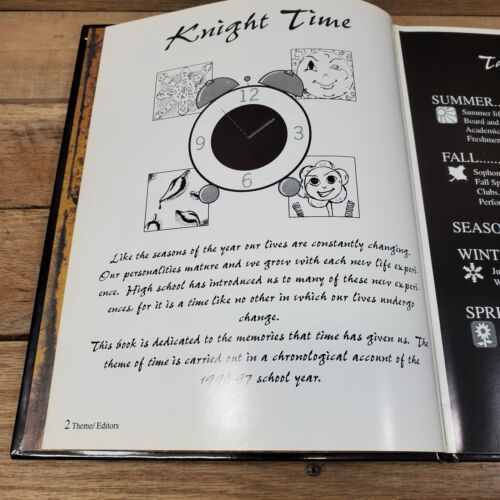 Knight Time
12
9
3
6
Like the seasons of the year our lives are constantly changing.
Our personalities mature and we grow with each new life experi-
ence. High school has introduced us to many of these new experi-
ences, for it is a time like no other in which our lives undergo
change.
This book is dedicated to the memories that time has given us. The
theme of time is carried out in a chronological account of the
1996-97 school year.
2 Theme/ Editors
SUMMER..
Summer lif
Board and
Academic
Freshmen
FALL......
Sophom
Fall Sp
Clubs.
Perfo
SEASO
WINT
Ju
W
SPRI